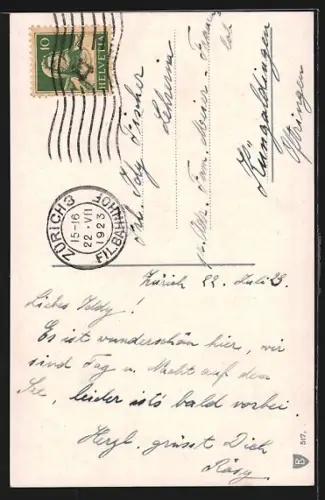 10
HELVETIA
ZÜRICH 3
15-16
22. VII
1923
FIL. BAHNHOF
Frl. Idy Fischer
Lehrerin
Fam. Meier-
Küngoldingen
Oftringen
Zürich 22. Juli 23.
Liebes Iddy!
Es ist wunderschön hier, wir
sind Tag u. Nacht auf dem
See, leider ist's bald vorbei.
Herzl. grüsst Dich
Rösy
517.
B